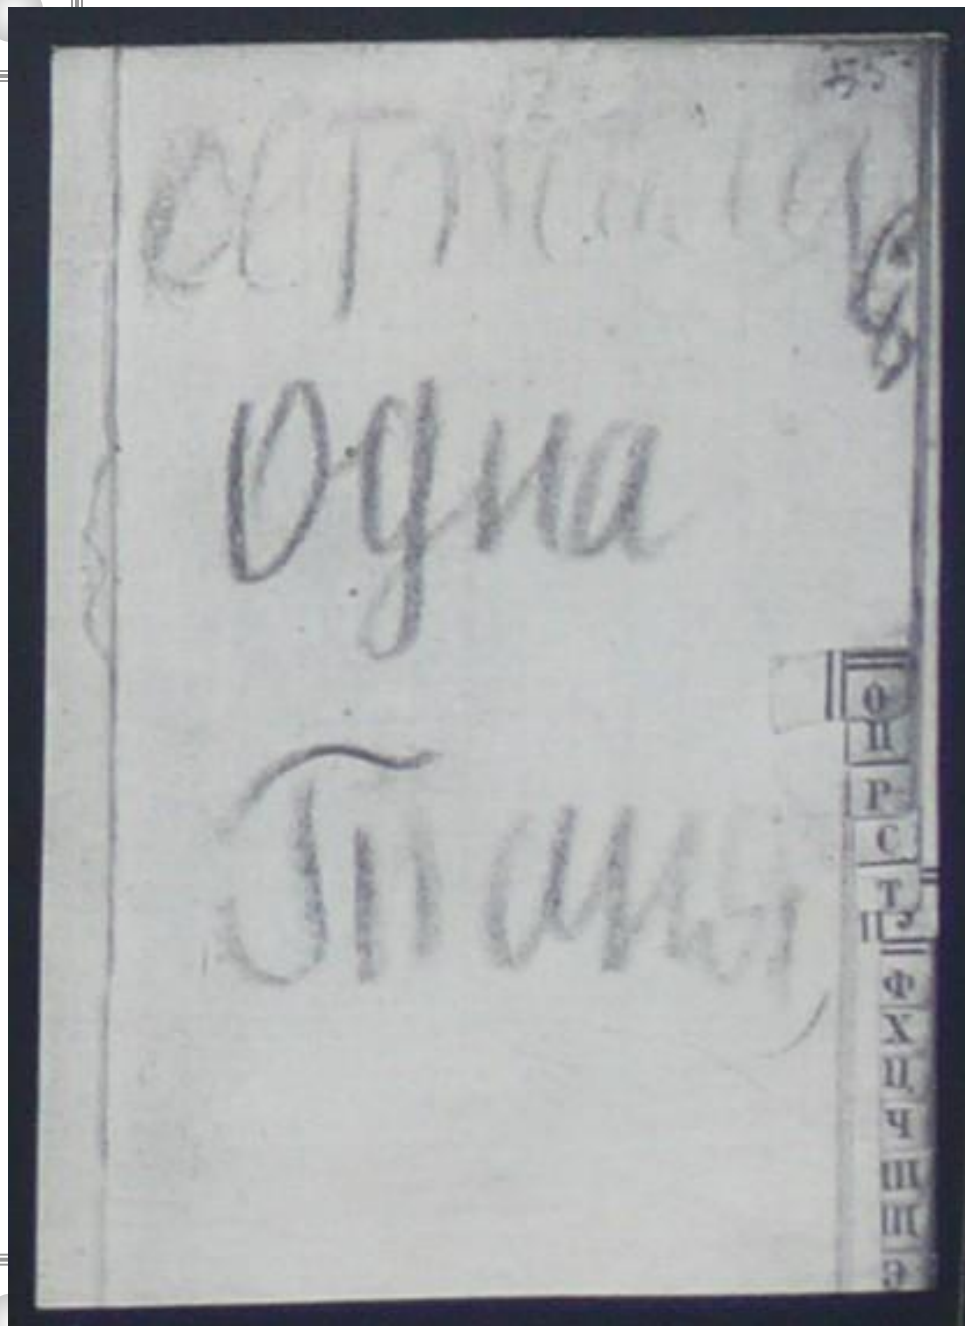 Осталась
одна
Таня
О
П
Р
С
Т
У
Ф
Х
Ц
Ч
Ш
Щ
Э